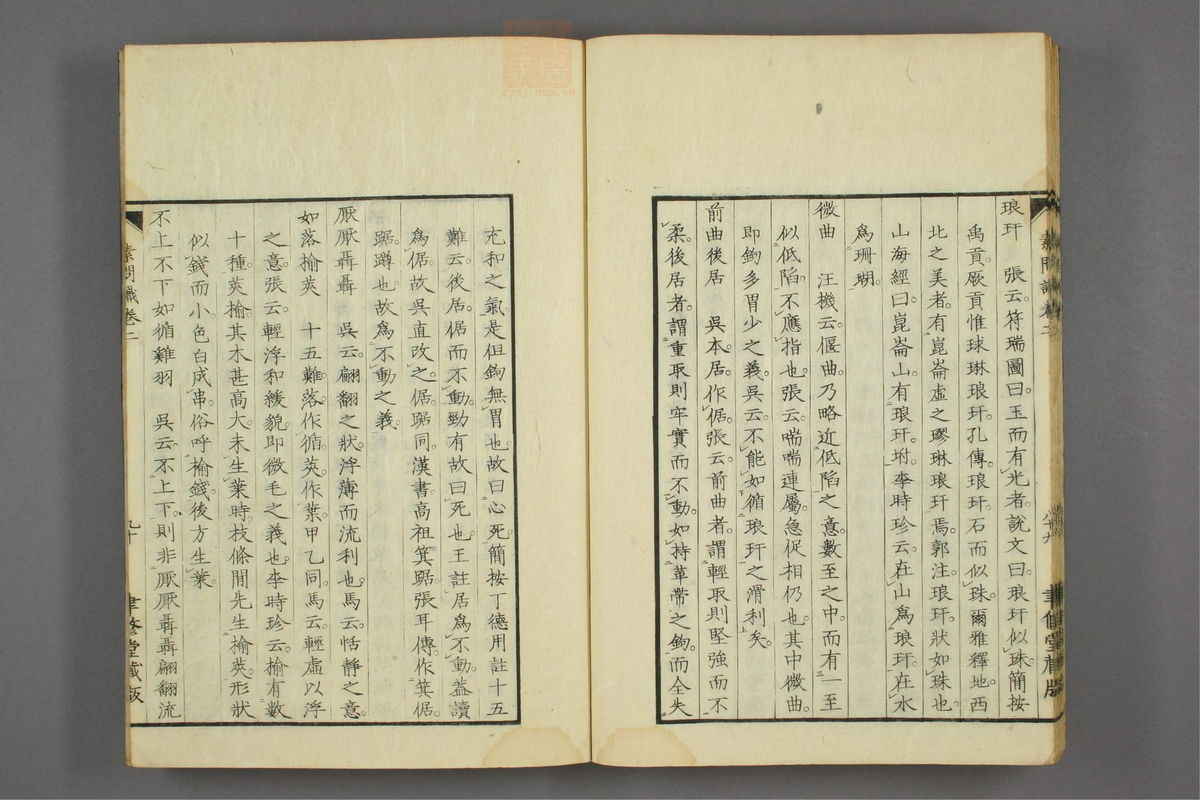 琅玕　張云符瑞圖曰玉而有光者說文曰琅玕似珠簡按
禹貢厥貢惟球琳琅玕孔傳琅玕石而似珠爾雅釋地西
北之美者有崑崙虛之璆琳琅玕焉郭注琅玕狀如珠也
山海經曰崑崙山有琅玕坿李時珍云在山爲琅玕在水
爲珊瑚
微曲　汪機云偃曲乃略近低陷之意數至之中而有一至
似低陷不應指也張云喘喘連屬急促相仍也其中微曲
即鉤多胃少之義吳云不能如循琅玕之滑利矣
前曲後居　吳本居作倨張云前曲者謂輕取則堅強而不
柔後居者謂重取則牢實而不動如持革帶之鉤而全失
充和之氣是但鉤無胃也故曰心死簡按丁德用註十五
難云後居倨而不動勁有故曰死也王註居爲不動蓋讀
爲倨故吳直改之倨踞同漢書高祖箕踞張耳傳作箕倨
踞蹲也故爲不動之義
厭厭聶聶　吳云翩翻之狀浮薄而流利也馬云恬靜之意
如落揄莢　十五難落作循莢作葉甲乙同馬云輕虛以浮
之意張云輕浮和緩貌即微毛之義也李時珍云揄有數
十種莢揄其木甚高大未生葉時枝條間先生揄莢形狀
似錢而小色白成串俗呼揄錢後方生葉
不上不下如循雞羽　吳云不上下則非厭厭聶聶翩翻流
素問識卷二
九十
聿修堂藏版